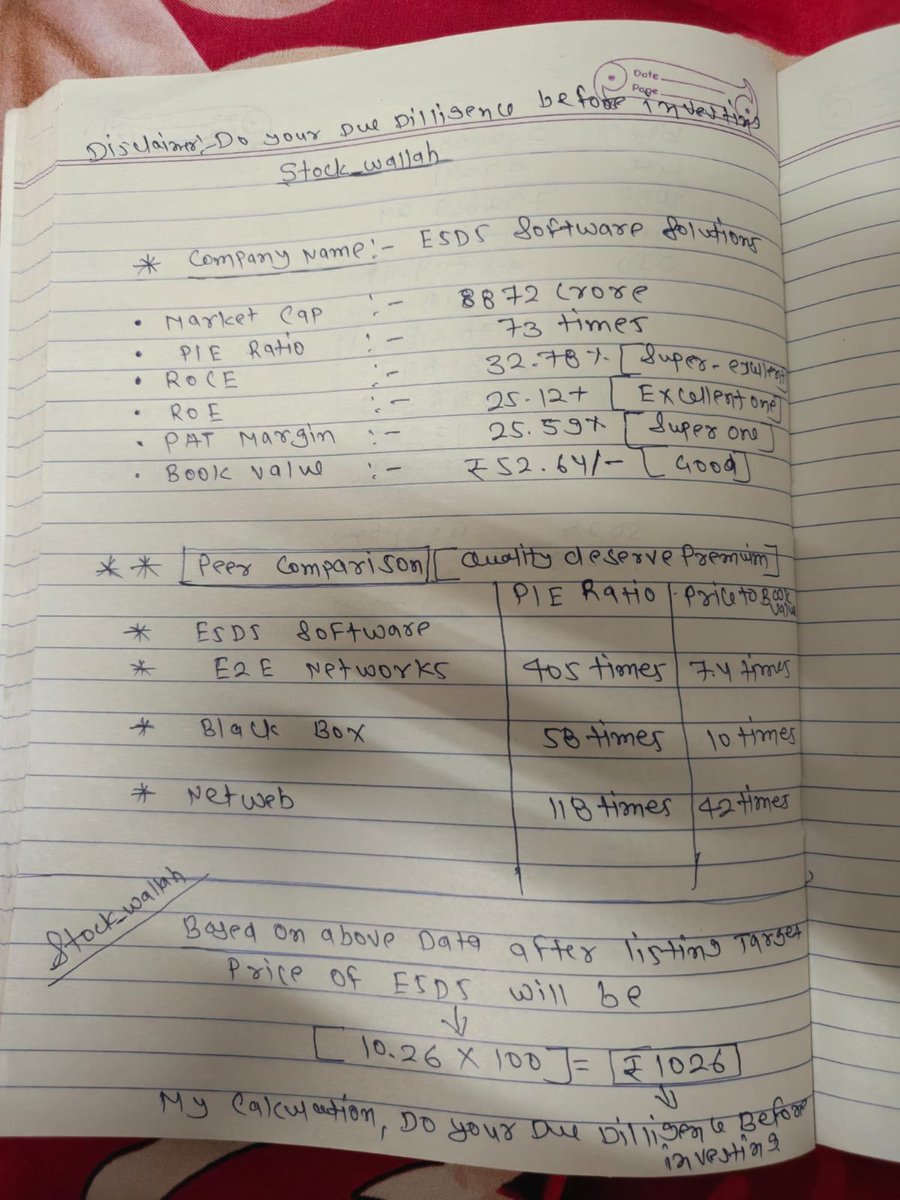 Date
Page
Disclaimer:- Do your Due Dilligence before investing
Stock_wallah
* Company Name :- ESDS Software Solutions
• Market Cap :- 8872 Crore
• P/E Ratio :- 73 times
• ROCE :- 32.78% [Super-excellent]
• ROE :- 25.12% [Excellent one]
• PAT Margin :- 25.59% [Super one]
• Book value :- ₹52.64/- [Good]
** [Peer Comparison] [Quality deserve Premium]
P/E Ratio Price to Book Value
* ESDS Software
* E2E Networks 405 times 7.4 times
* Black Box 58 times 10 times
* Netweb 118 times 42 times
Stock_wallah
Based on above Data after listing Target
Price of ESDS will be
↓
[10.26 X 100] = [₹1026]
↓
My Calculation, Do your Due Dilligence Before
investing